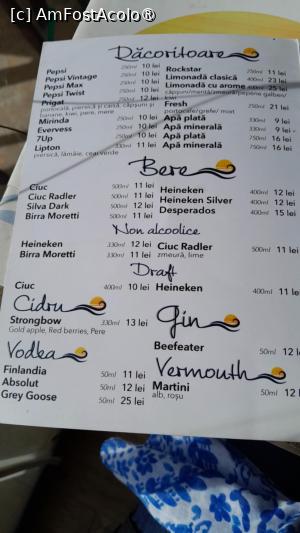 [c] AmFostAcolo®
Dăcoritoare
Pepsi 250ml 10 lei
Pepsi Vintage 250ml 10 lei
Pepsi Max 250ml 10 lei
Pepsi Twist 250ml 10 lei
Prigat 250ml 12 lei
portocală, piersică și caisă, căpșuni și
banane, kiwi, pere, mere
Mirinda 250ml 10 lei
Evervess 250ml 10 lei
7Up 250ml 10 lei
Lipton 330ml 11 lei
piersică, lămâie, ceai verde
Rockstar 250ml 11 lei
Limonadă clasică 400ml 23 lei
Limonadă cu arome 400ml 25 lei
căpșuni/mentă/zmeură/pepene galben/
kiwi
Fresh 250ml 21 lei
portocale/grefe/mixt
Apă plată 330ml 9 lei
Apă minerală 330ml 9 lei
Apă plată 750ml 16 lei
Apă minerală 750ml 16 lei
Bere
Ciuc 500ml 11 lei
Ciuc Radler 500ml 11 lei
Silva Dark 500ml 12 lei
Birra Moretti 500ml 11 lei
Heineken 400ml 12 lei
Heineken Silver 400ml 12 lei
Desperados 400ml 15 lei
Non alcoolice
Heineken 330ml 12 lei
Birra Moretti 330ml 11 lei
Ciuc Radler 500ml 11 lei
zmeură, lime
Draft
Ciuc 400ml 10 lei
Heineken 400ml 11 lei
Cidru
Strongbow 330ml 13 lei
Gold apple, Red berries, Pere
Gin
Beefeater 50ml 12
Vodka
Finlandia 50ml 11 lei
Absolut 50ml 12 lei
Grey Goose 50ml 25 lei
Vermouth
Martini 50ml 12
alb, roșu